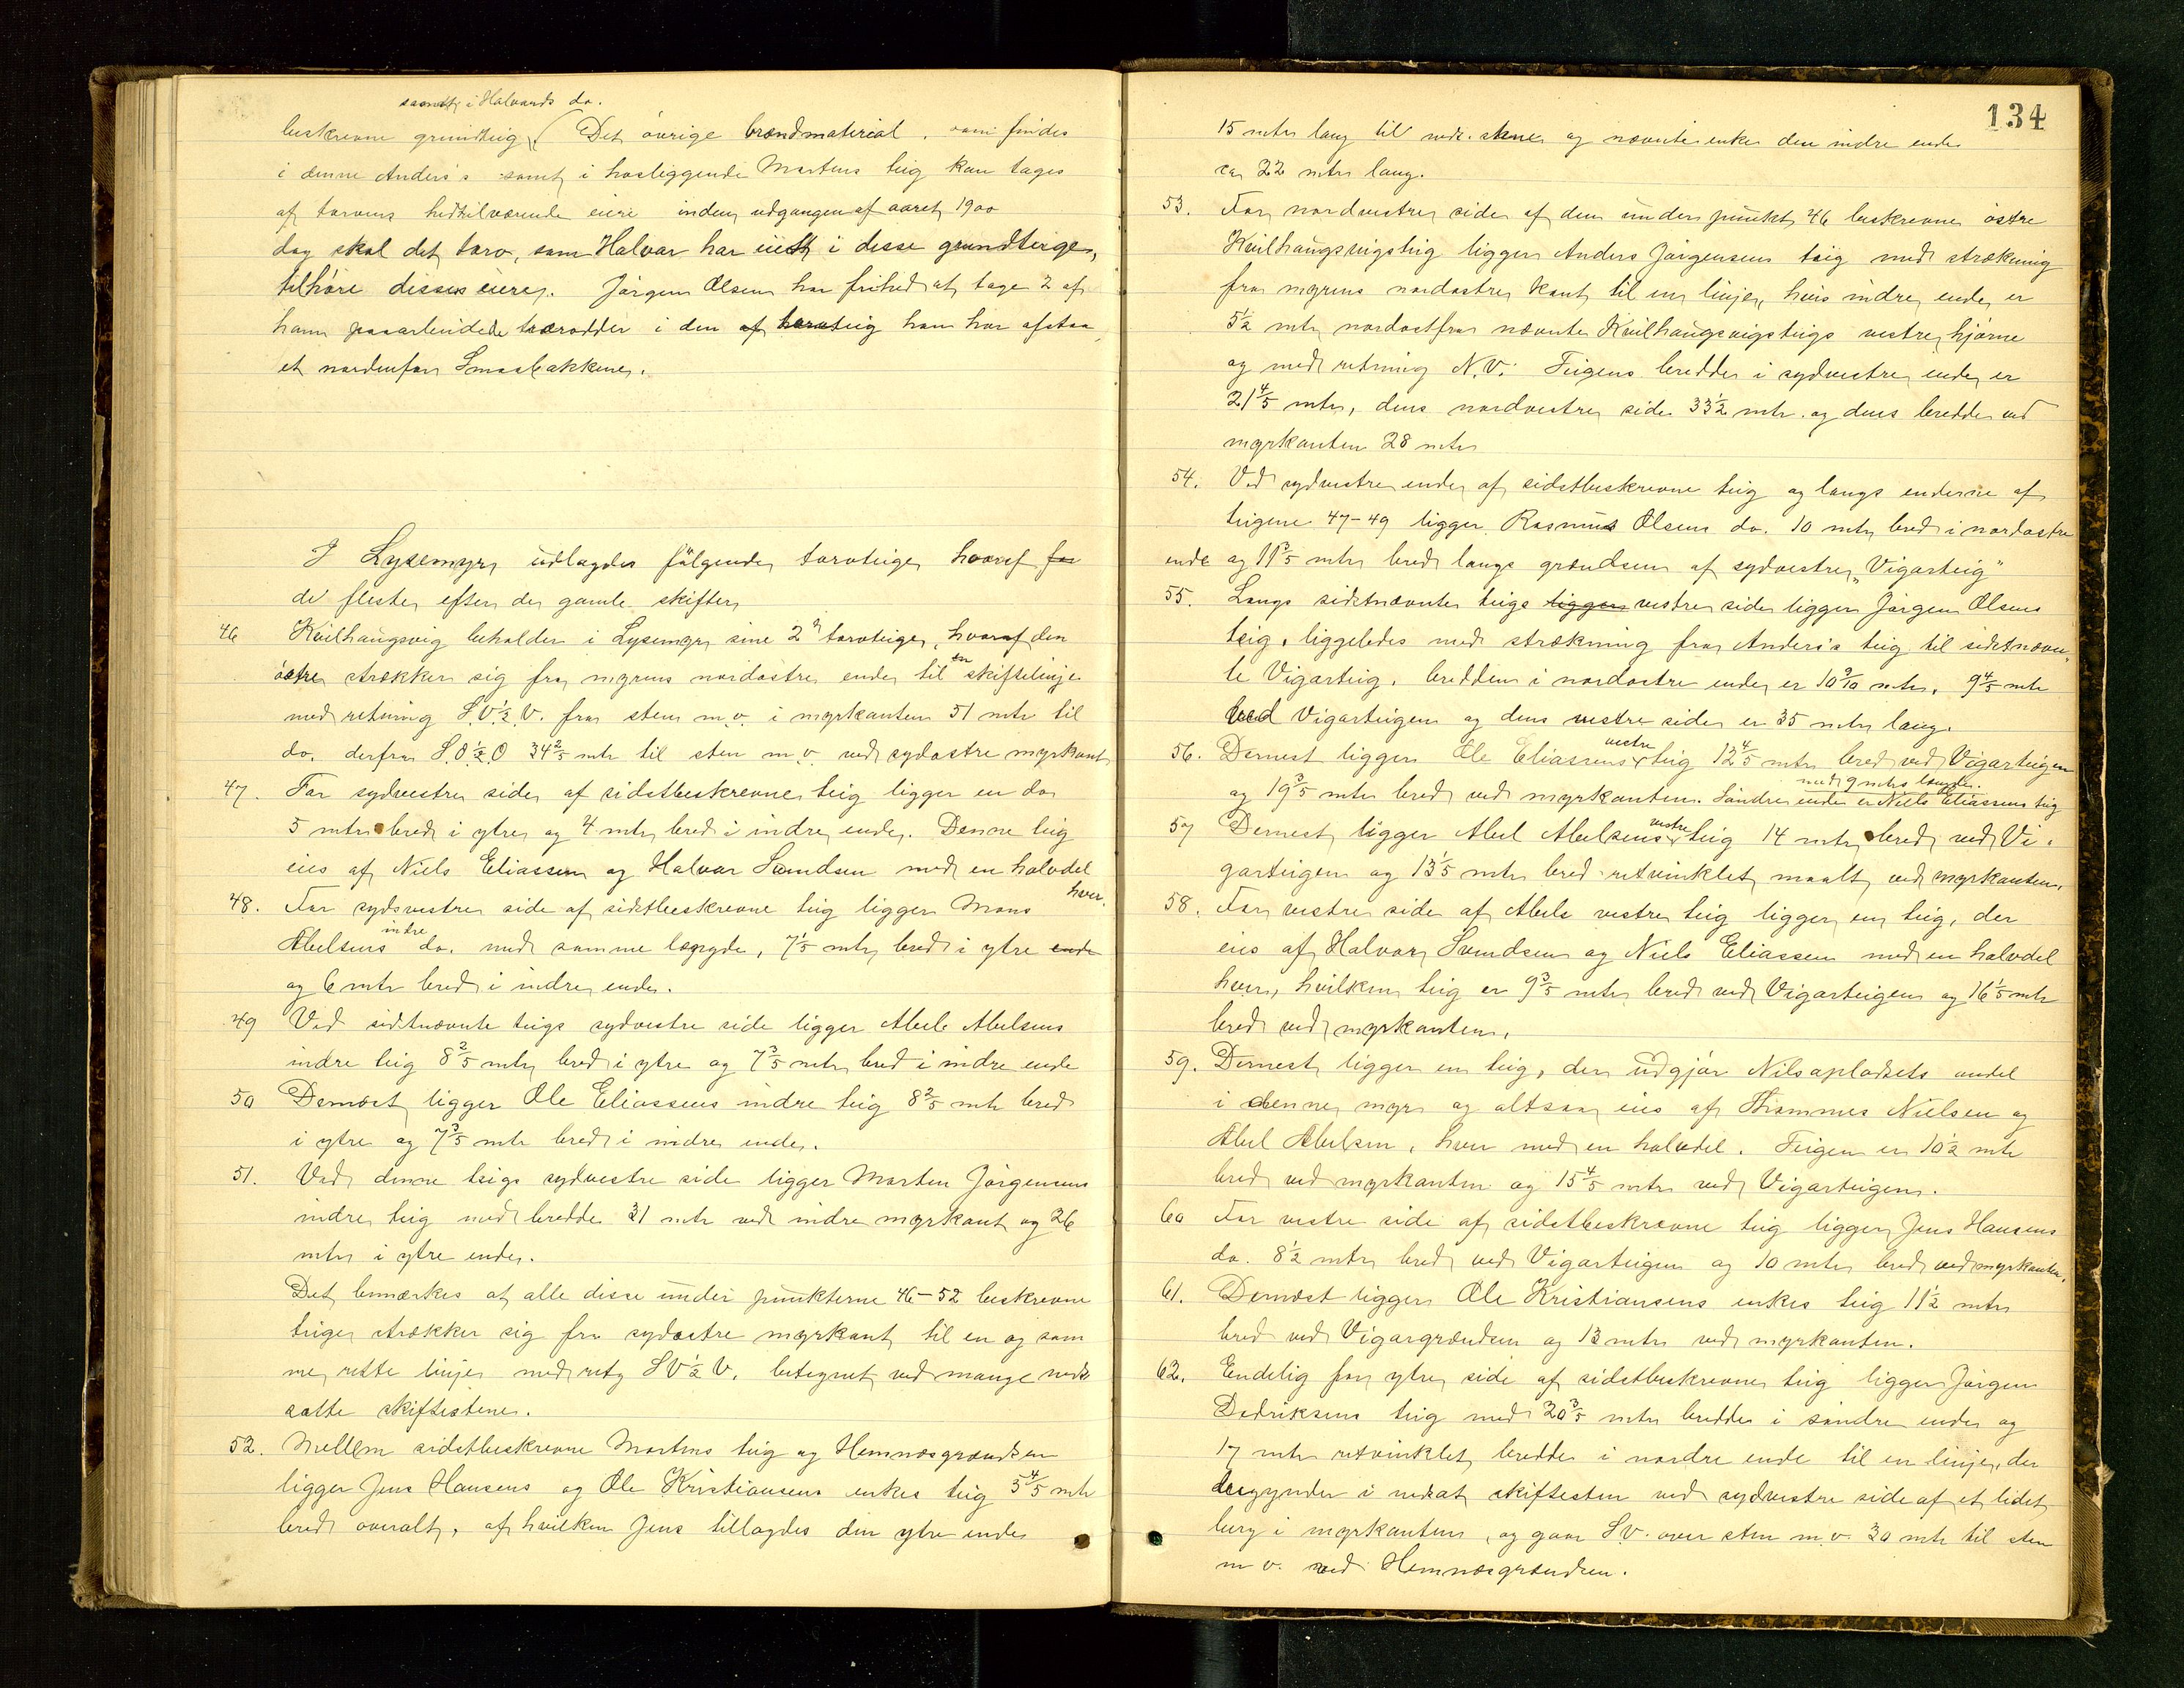 samt i Halvards do.
beskrevne grundteig. Det övrige brændmaterial, som findes
i denne Anders's samt i hosliggende Martens teig kan tages
af torvens hidtilværende eiere inden udgangen af aaret 1900
dog skal det torv, som Halvar har i disse grundteige,
tilhöre disses eiere. Jörgen Olsen har frihed at tage 2 af
ham paaarbeidede i den af torvteig han har afstaa
et nordenfor Smaabakkene.
I Lysemyr udlagdes fölgende torvteige hvoraf for
de fleste efter de gamle skifter
46 Kvilhaugsvig beholder i Lysemyr sine 2 torvteige, hvoraf den
östre strækker sig fra myrens nordöstre ende til en skiftelinje
med retning S.V.½.V. fra sten m.v. i myrkanten 51 mtr til
do. derfra S.O.½.O 34⅖ mtr til sten m.v. ved sydöstre myrkant
47. For sydvestre side af sidstbeskrevne teig ligger en do
5 mtr bred i ytre og 4 mtr bred i indre ende. Denne teig
eies af Niels Eliassen og Halvar Svendsen med en halvdel
hver.
48. For sydvestre side af sidstbeskrevne teig ligger Mons
Abelsens indre do. med samme længde, 7⅕ mtr bred i ytre ende
og 6 mtr bred i indre ende.
49 Ved sidstnævnte teigs sydvestre side ligger Abels Abelsens
indre teig 8⅖ mtr bred i ytre og 7⅗ mtr bred i indre ende
50 Dernæst ligger Ole Eliassens indre teig 8⅖ mtr bred
i ytre og 7⅗ mtr bred i indre ende.
51. Ved denne teigs sydvestre side ligger Morten Jörgensens
indre teig med bredde 31 mtr ved indre myrkant og 26
mtr i ytre ende.
Det bemærkes at alle disse under punkterne 46-52 beskrevne
teiger strækker sig fra sydöstre myrkant til en og sam
me rette linje med retg SV½V. betegnet ved mange ned
satte skiftestene.
52. Mellem sidstbeskrevne Mortens teig og Hemnæsgrændsen
ligger Jens Hansens og Ole Kristiansens enkes teig 5⅘ mtr
bred overalt, af hvilken Jens tillagdes den ytre ende
134
15 mtr lang til neds. stene og nævnte enke den indre ende
ca 22 mtr lang.
53. For nordvestre side af den under punkt 46 beskrevne östre
Kvilhaugsvigsteig ligger Anders Jörgensens teig med strækning
fra myrens nordöstre kant til en linje, hvis indre ende er
5½ mtr nordostfra nævnte Kvilhaugsvigsteigs vestre hjörne
og med retning N.V. Teigens bredde i sydvestre ende er
21⅘ mtr, dens nordvestre side 33½ mtr og dens bredde ved
myrkanten 28 mtr
54. Ved sydvestre ende af sidstbeskrevne teig og langs enderne af
teigene 47-49 ligger Rasmus Olsens do. 10 mtr bred i nordöstre
ende og 11⅗ mtr bred langs grændsen af sydvestre "Vigarteig"
55. Langs sidstnævnte teigs ligger vestre side ligger Jörgen Olsens
teig, liggeledes med strækning fra Anders's teig til sidstnævn
te Vigarteig. bredden i nordöstre ende er 10 9/10 mtr, 9⅘ mtr
ved Vigarteigen og dens vestre side er 35 mtr lang.
56. Dernest ligger Ole Eliassens vestre teig 12⅘ mtr bred ved Vigarteigen
og 19⅗ mtr bred ved myrkanten. Söndre ende er Niels Eliassens teig
med 9 mtrs længde.
57 Dernest ligger Abel Abelsens vestre teig 14 mtr bred ved Vi-
garteigen og 13⅕ mtr bred retvinklet maalt ved myrkanten.
58. For vestre side af Abels vestre teig ligger en teig, der
eies af Halvor Svendsen og Niels Eliassen med en halvdel
hver, hvilken teig er 9⅗ mtr bred ved Vigarteigen og 16⅕ mtr
bred ved myrkanten.
59. Dernest ligger en teig, der udgjör Nilsapladsets andel
i denne myr og altsaa eies af Nielsen og
Abel Abelsen, hver med en halvdel. Teigen er 10½ mtr
bred ved myrkanten og 15⅘ mtr ved Vigarteigen.
60 For vestre side af sidstbeskrevne teig ligger Jens Hansens
do. 8½ mtr bred ved Vigarteigen og 10 mtr bred ved myrkanten.
61. Dernæst ligger Ole Kristiansens enkes teig 11½ mtr
bred ved Vigargrændsen og 13 mtr ved myrkanten.
62. Endelig for ytre side af sidstbeskrevne teig ligger Jörgen
Dedriksens teig med 20⅗ mtr bredde i söndre ende og
17 mtr retvinklet bredde i nordre ende til en linje, der
begynder i nedsat skiftesten ved sydvestre side af et lidet
berg i myrkanten, og gaar S.V. over sten m.v. 30 mtr til sten
m v. ved Hemnæsgrændsen.